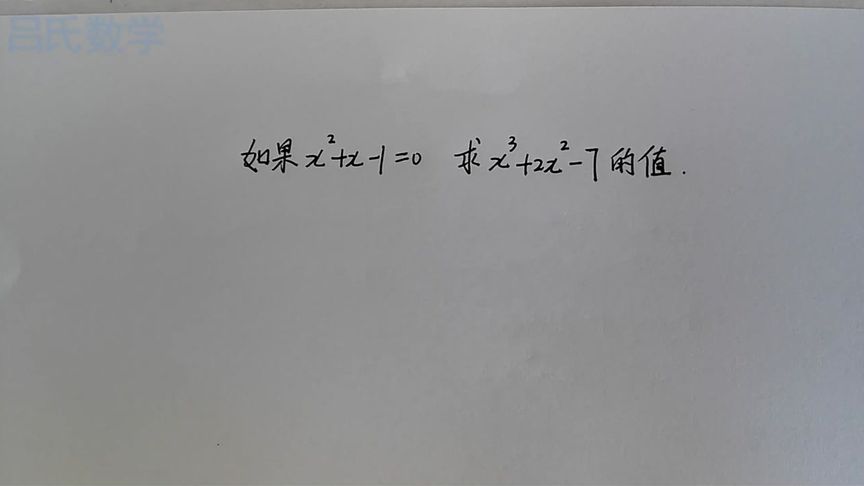 吕氏数学
如果x²+x-1=0 求x³+2x²-7的值.